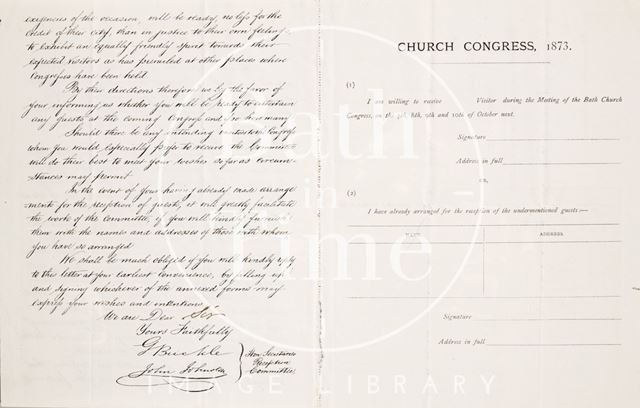 exigencies of the occasion, will be ready, no less for the
credit of their city, than in justice to their own feelings
to exhibit an equally friendly spirit towards their
expected visitors as has prevailed at other places where
Congresses have been held.
By their directions therefore we beg the favor of
your informing us whether you will be ready to entertain
any guests at the coming Congress and for how many
Should there be any intending visitors to the Congress
whom you would especially prefer to receive the Committee
will do their best to meet your wishes so far as circum-
stances may permit
In the event of your having already made arrange-
ments for the reception of guests, it will greatly facilitate
the work of the Committee, if you will kindly furnish
them with the names and addresses of those with whom
you have so arranged
We shall be much obliged if you will kindly reply
to this letter at your earliest convenience, by filling up
and signing whichever of the annexed forms may
express your wishes and intentions
We are Dear Sir
Yours Faithfully
G Buckle
John Johnston
Hon Secretaries
Reception
Committee
CHURCH CONGRESS, 1873.
(1)
I am willing to receive Visitor during the Meeting of the Bath Church
Congress, on the 7th, 8th, 9th and 10th of October next.
Signature
Address in full
OR,
(2)
I have already arranged for the reception of the undermentioned guests:—
NAME. ADDRESS.
Signature
Address in full
Bath
in
Time
IMAGE LIBRARY